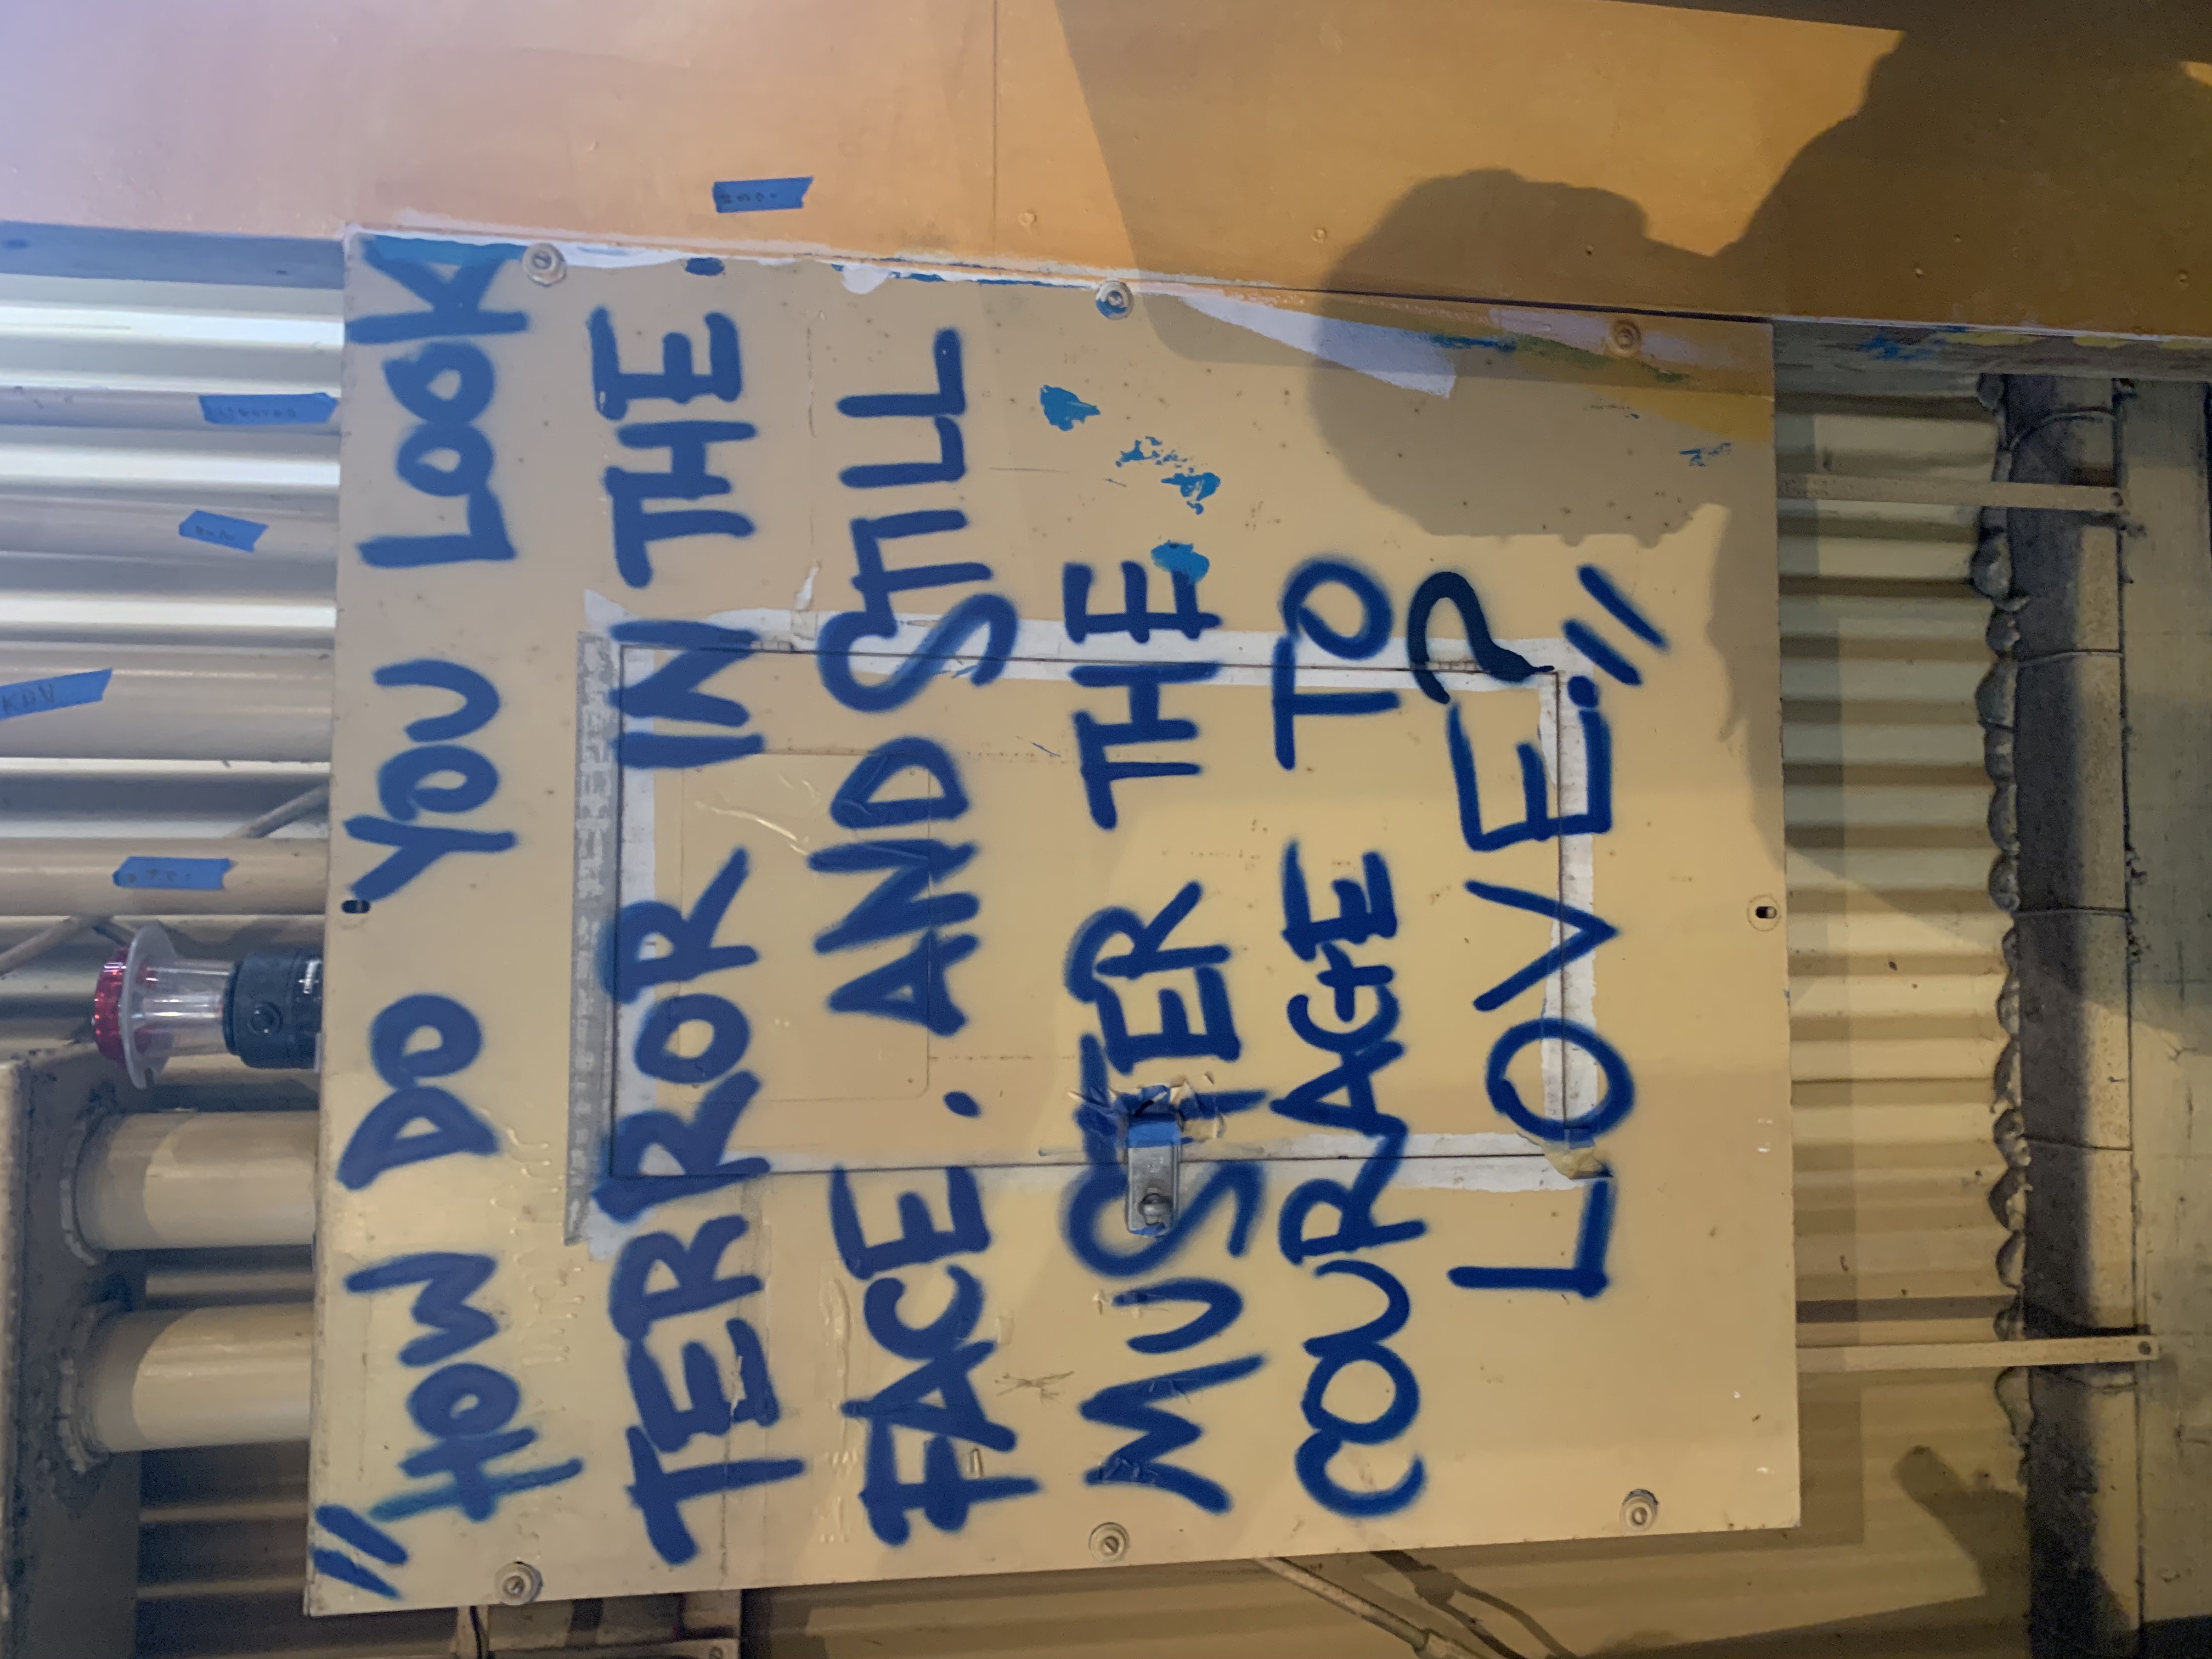 "HOW DO YOU LOOK
TERROR IN THE
FACE. AND STILL
MUSTER THE
COURAGE TO
LOVE?"